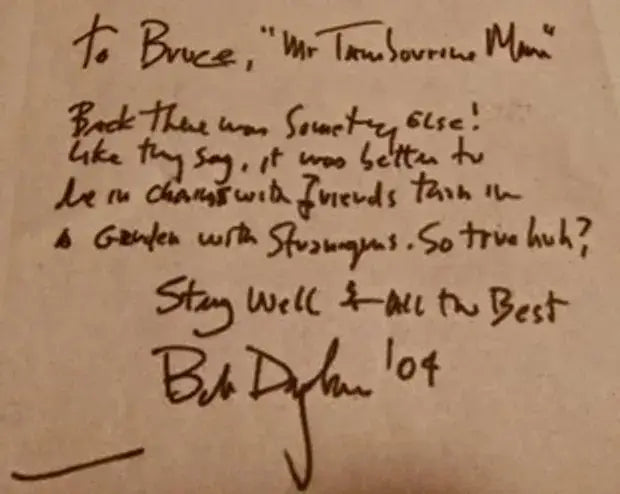 to Bruce, "Mr Tambourine Man"
Back there was Something Else!
Like they say, it was better to
be in chains with friends than in
a Garden with Strangers. So true huh?
Stay Well & All the Best
Bob Dylan '04